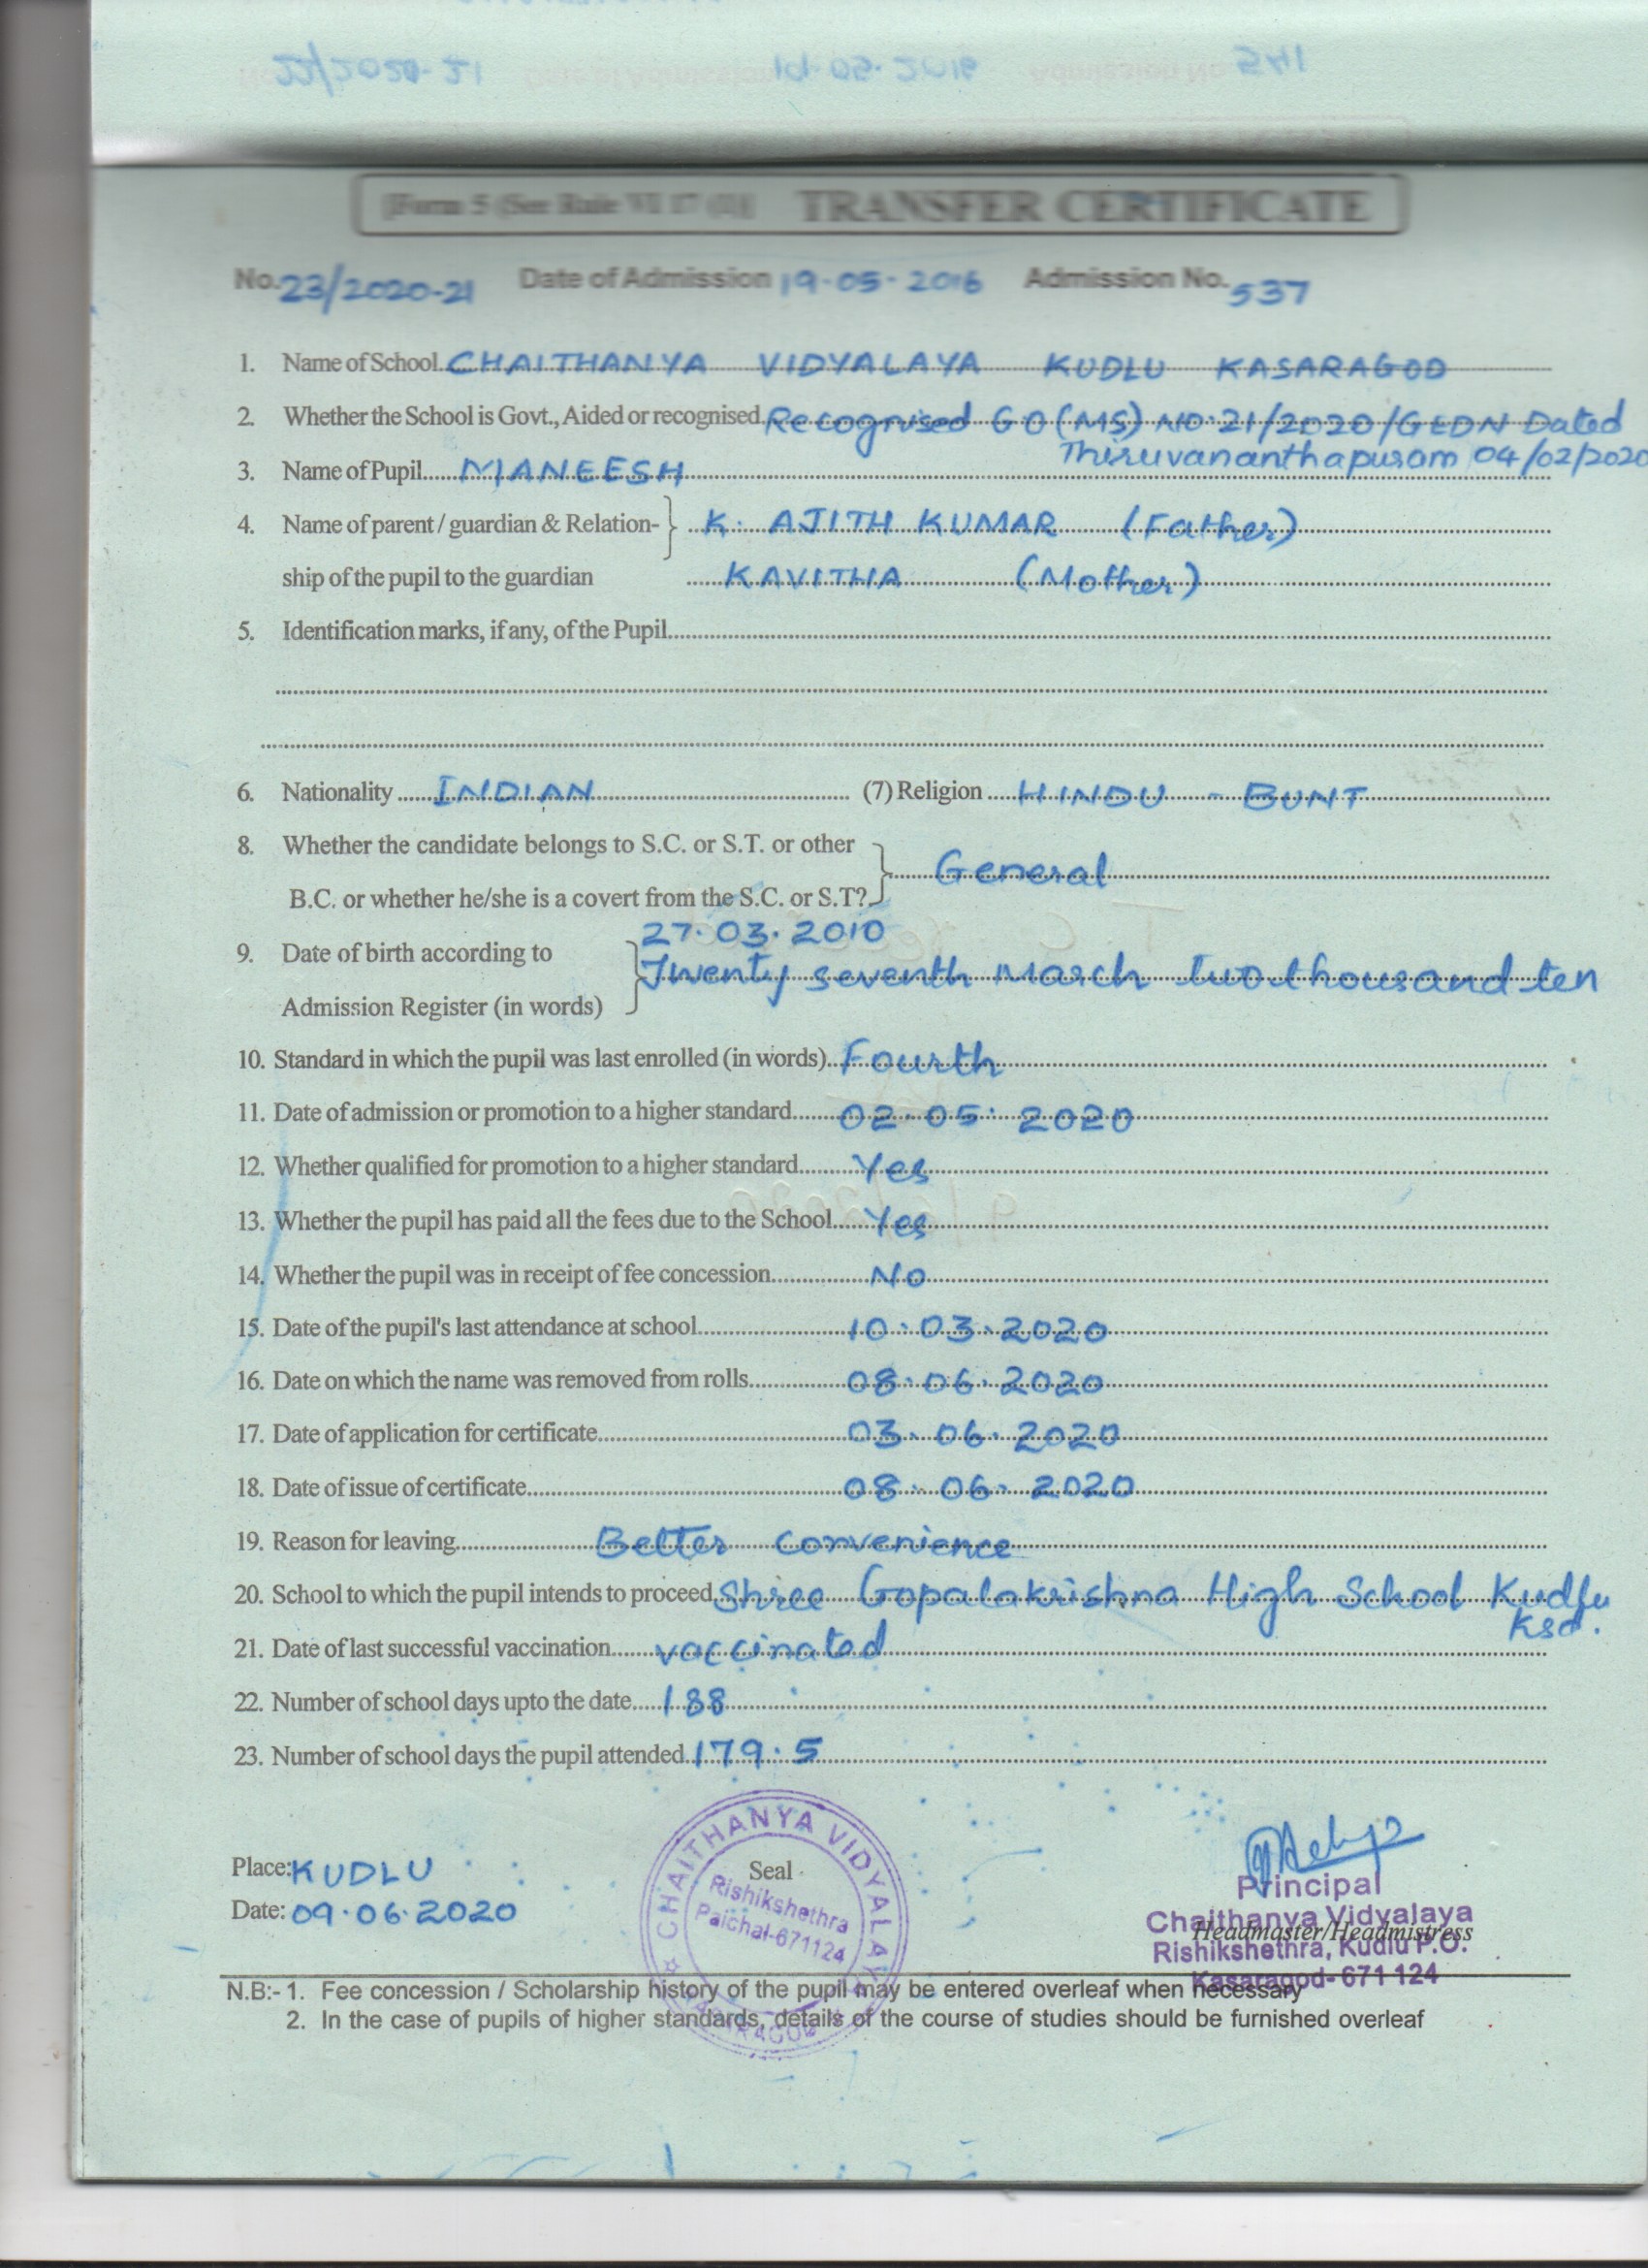 [Form 5 (See Rule VI 17 (i)] TRANSFER CERTIFICATE
No. 23/2020-21 Date of Admission 19-05-2016 Admission No. 537
1. Name of School CHAITHANYA VIDYALAYA KUDLU KASARAGOD
2. Whether the School is Govt., Aided or recognised Recognised GO(MS) NO:21/2020/GEDN Dated
Thiruvananthapuram 04/02/2020
3. Name of Pupil MANEESH
4. Name of parent / guardian & Relation- K. AJITH KUMAR (Father)
ship of the pupil to the guardian KAVITHA (Mother)
5. Identification marks, if any, of the Pupil
6. Nationality INDIAN (7) Religion HINDU - BUNT
8. Whether the candidate belongs to S.C. or S.T. or other
B.C. or whether he/she is a covert from the S.C. or S.T? General
27.03.2010
9. Date of birth according to Twenty seventh March two thousand ten
Admission Register (in words)
10. Standard in which the pupil was last enrolled (in words) Fourth
11. Date of admission or promotion to a higher standard 02.05.2020
12. Whether qualified for promotion to a higher standard Yes
13. Whether the pupil has paid all the fees due to the School Yes
14. Whether the pupil was in receipt of fee concession No
15. Date of the pupil's last attendance at school 10.03.2020
16. Date on which the name was removed from rolls 08.06.2020
17. Date of application for certificate 03.06.2020
18. Date of issue of certificate 08.06.2020
19. Reason for leaving Better convenience
20. School to which the pupil intends to proceed Shree Gopalakrishna High School Kudlu
Ksd.
21. Date of last successful vaccination vaccinated
22. Number of school days upto the date 188
23. Number of school days the pupil attended 179.5
Place: KUDLU
Date: 09.06.2020
Seal
CHAITHANYA VIDYALAYA
Rishikshethra
Paichal-671124
KASARAGOD
Principal
Chaithanya Vidyalaya
Headmaster/Headmistress
Rishikshethra, Kudlu P.O.
Kasaragod- 671 124
N.B:- 1. Fee concession / Scholarship history of the pupil may be entered overleaf when necessary
2. In the case of pupils of higher standards, details of the course of studies should be furnished overleaf